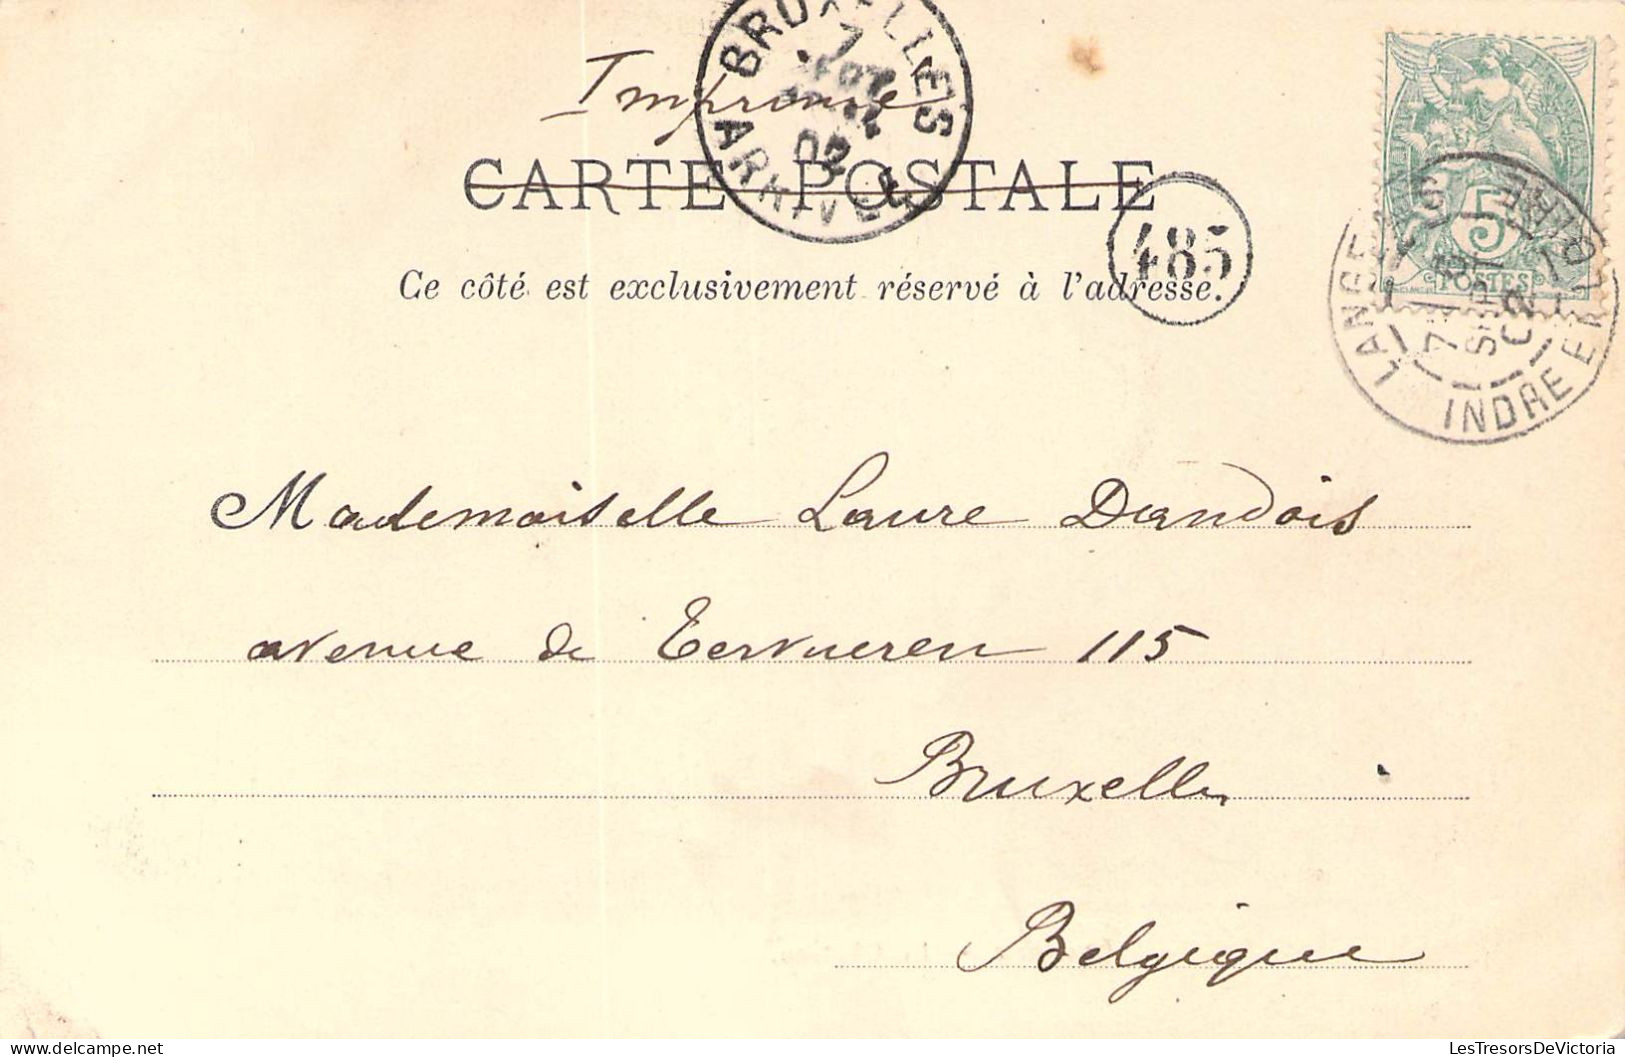 BRUXELLES
7
SEPT
02
ARRIVÉE
Imprimé
CARTE POSTALE
485
Ce côté est exclusivement réservé à l'adresse.
5
POSTES
LANGEAIS
7E
SEPT
02
INDRE ET LOIRE
Mademoiselle Laure Dandois
avenue de Tervueren 115
Bruxelles
Belgique
LesTresorsDeVictoria